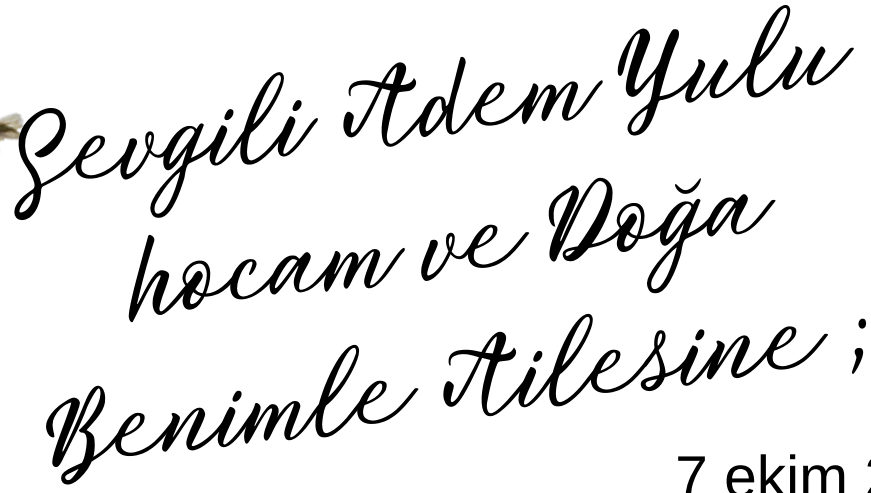 Sevgili Adem Yulu
hocam ve Doğa
Benimle Ailesine ;
7 ekim